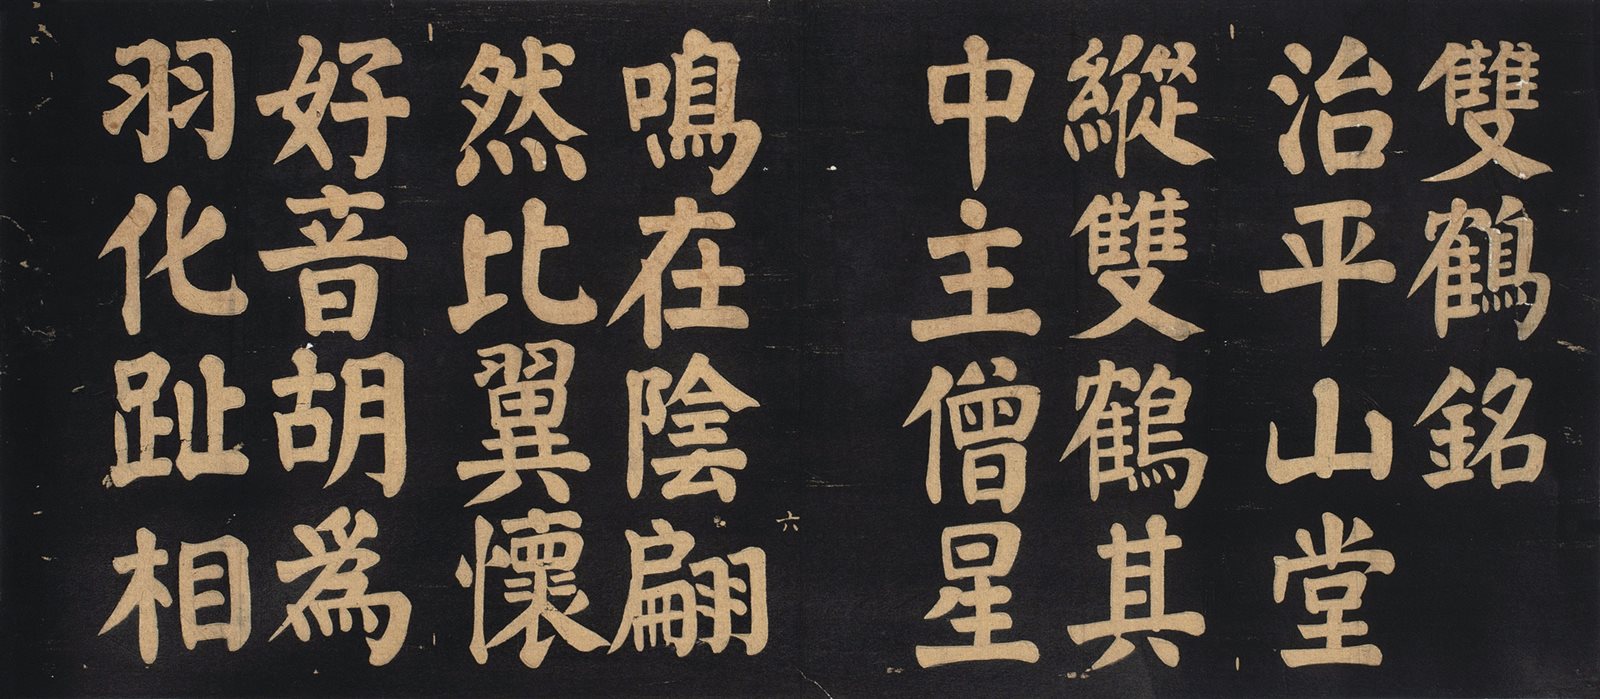 雙鶴銘
治平山堂
縱雙鶴其
中主僧星
六
鳴在陰翩
然比翼懷
好音胡為
羽化趾相